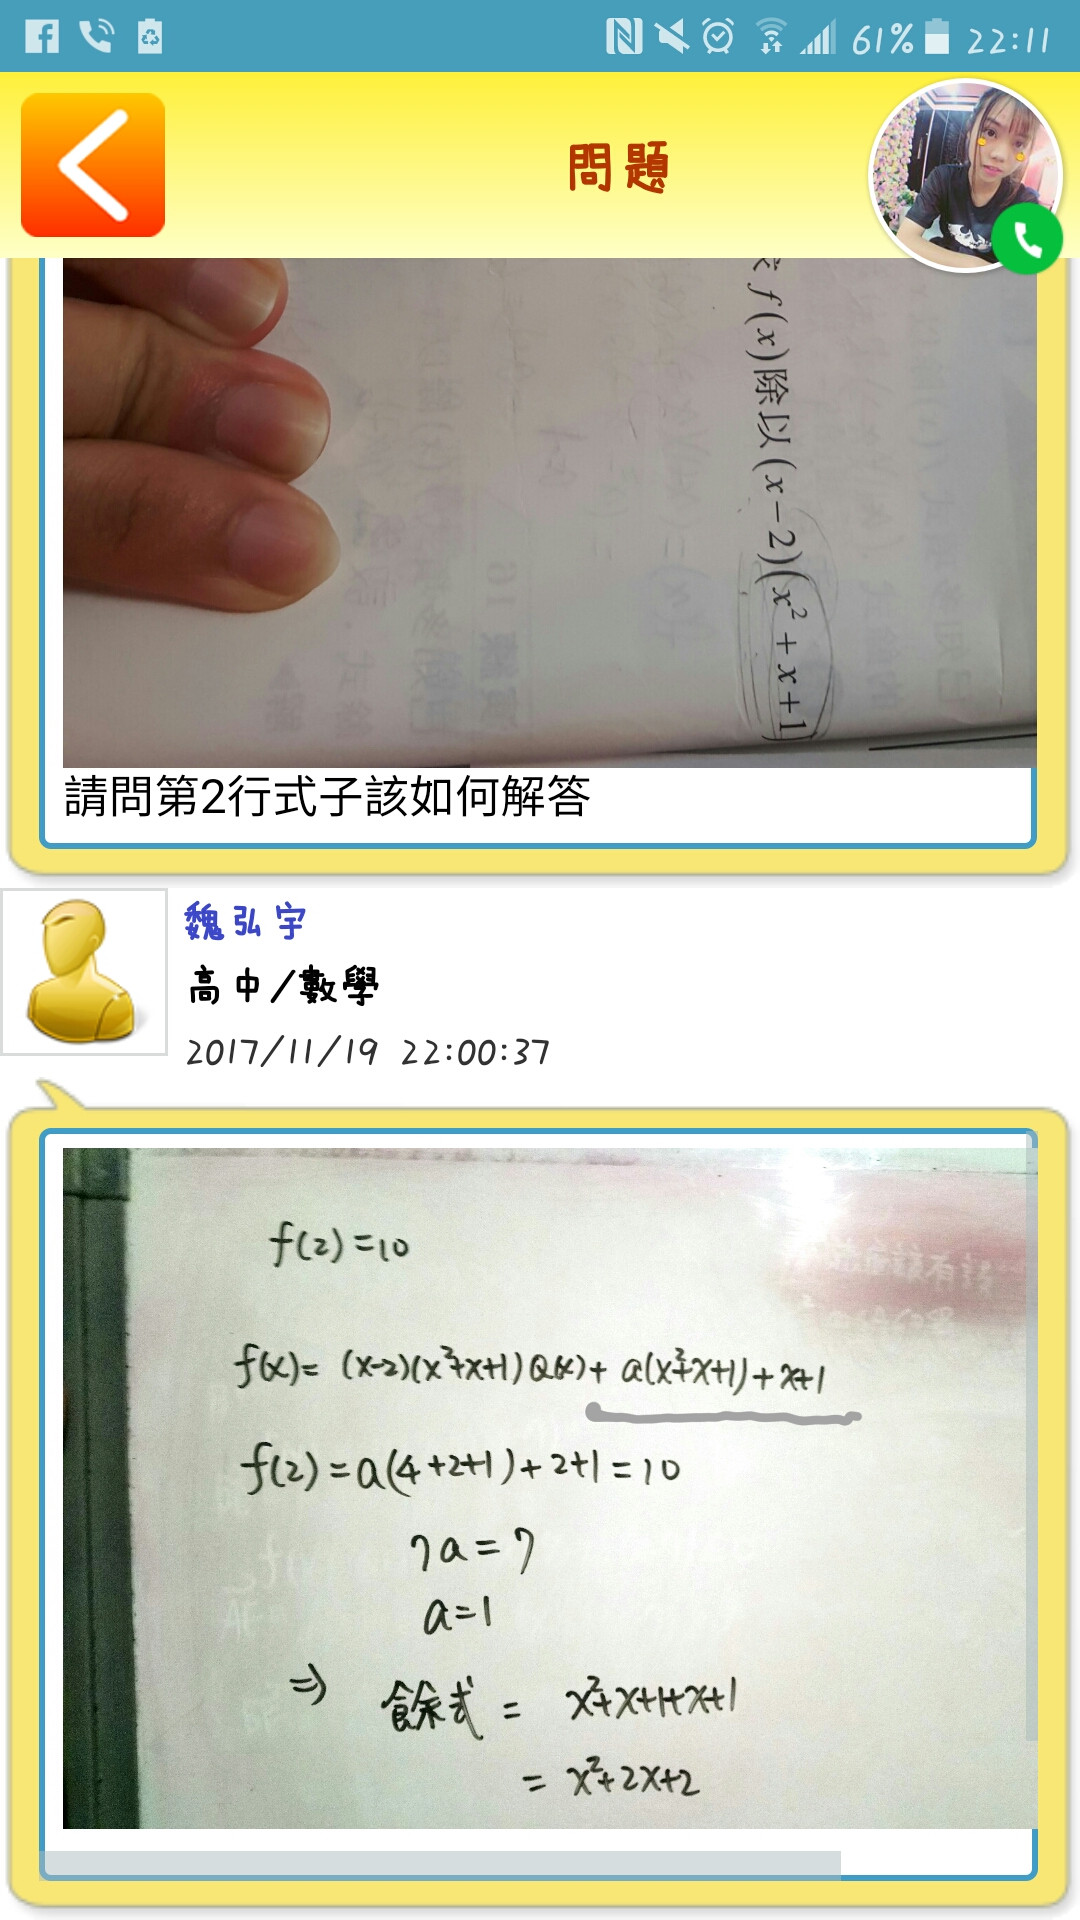 61% 22:11
問題
f(x)除以(x-2)(x²+x+1)
請問第2行式子該如何解答
魏弘宇
高中/數學
2017/11/19 22:00:37
f(2)=10
f(x)= (x-2)(x²+x+1)Q(x)+ a(x²+x+1)+x+1
f(2)=a(4+2+1)+2+1=10
7a=7
a=1
⇒ 餘式 = x²+x+1+x+1
= x²+2x+2